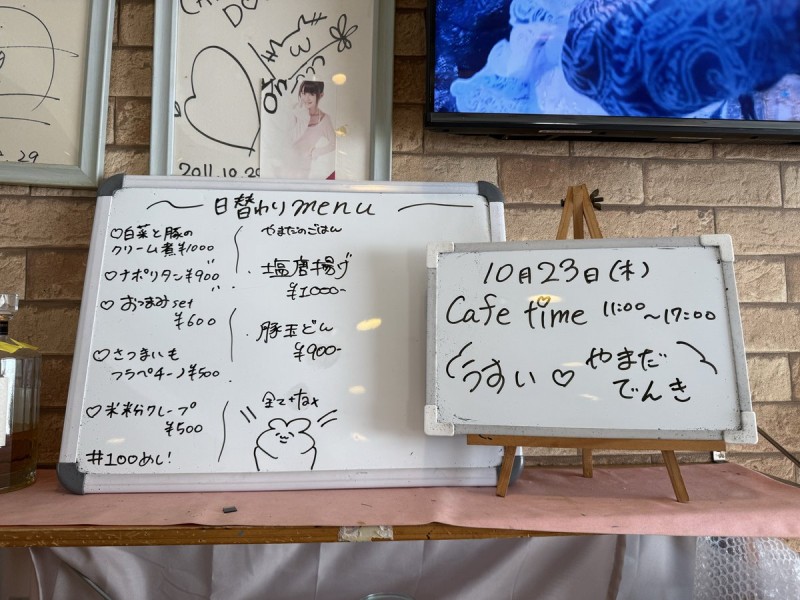 2011.10.29
.29
日替わりmenu
♡白菜と豚の
クリーム煮¥1000
♡ナポリタン¥900
♡おつまみset
¥600
♡さつまいも
フラペチーノ¥500
♡米粉クレープ
¥500
#100めし!
やまだのごはん
・塩唐揚げ
¥1000-
・豚玉どん
¥900-
全て+tax
10月23日(木)
Cafe time 11:00〜17:00
うすい♡やまだ
でんき